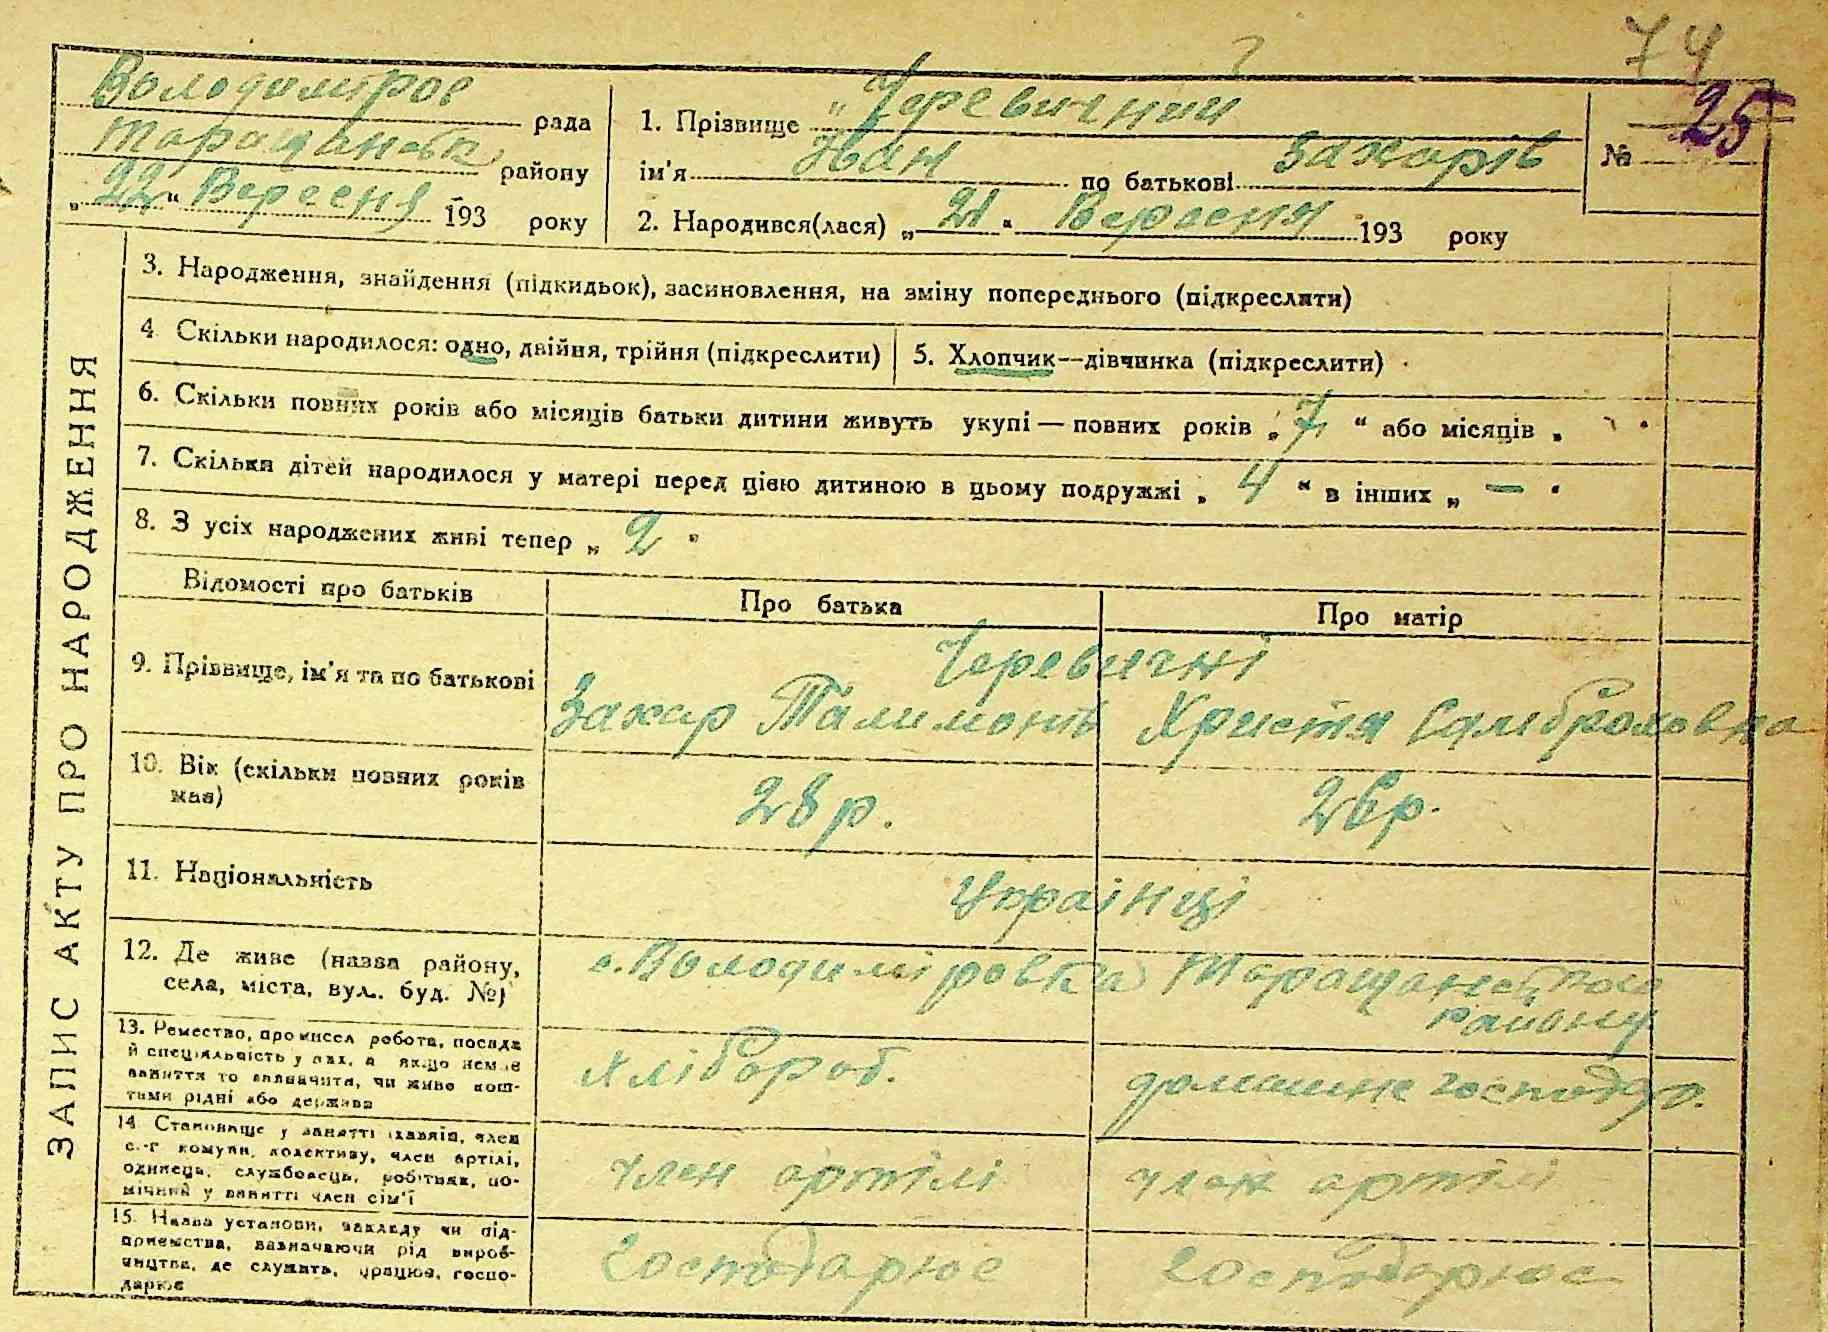 74
Володиміров рада
Таращанськ району
„22“ Вересня 193 року
1. Прізвище „Черевичний
ім'я Іван по батькові Захарів
2. Народився(лася) „21“ Вересня 193 року
№ 25
ЗАПИС АКТУ ПРО НАРОДЖЕННЯ
3. Народження, знайдення (підкидьок), засиновлення, на зміну попереднього (підкреслити)
4 Скільки народилося: одно, двійня, трійня (підкреслити)
5. Хлопчик—дівчинка (підкреслити)
6. Скільки повних років або місяців батьки дитини живуть укупі — повних років „7“ або місяців „
7. Скільки дітей народилося у матері перед цією дитиною в цьому подружжі „4“ в інших „—“
8. З усіх народжених живі тепер „2“
Відомості про батьків Про батька Про матір
9. Прізвище, ім'я та по батькові
Черевичні
Захар Талимонів Христя
10. Вік (скільки повних років має)
28 р. 26 р.
11. Національність
Українці
12. Де живе (назва району,
села, міста, вул. буд. №)
с. Володиміровка Таращанського
району
13. Ремество, промисел робота, посада
й спеціяльність у них, а якщо немає
заняття то зазначити, чи живе кош-
тами рідні або держави
Хлібороб. домашнє господар.
14 Становище у занятті хазяїн, член
с.-г комуни, колективу, член артілі,
одинець, службовець, робітник, по-
мічний у занятті член сім'ї
член артілі член артілі
15. Назва установи, закладу чи під-
приємства, зазначаючи рід вироб-
ництва, де служить, працює, госпо-
дарює
господарює господарює